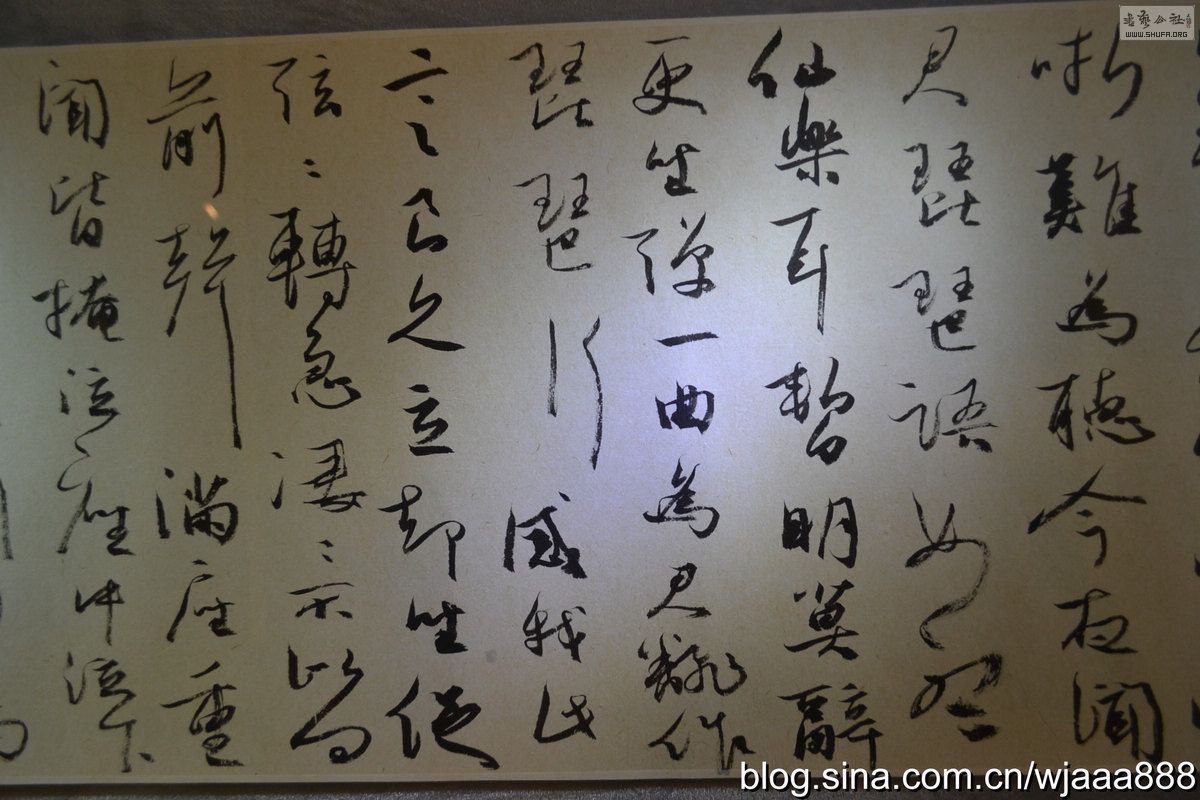 哳難為聽今夜聞
君琵琶語如聽
仙樂耳暫明莫辭
更坐彈一曲為君翻作
琵琶行感我此
言良久立却坐促
弦〻轉急凄〻不似向
前聲滿座重
聞皆掩泣座中泣下
書藝公社
WWW.SHUFA.ORG
blog.sina.com.cn/wjaaa888